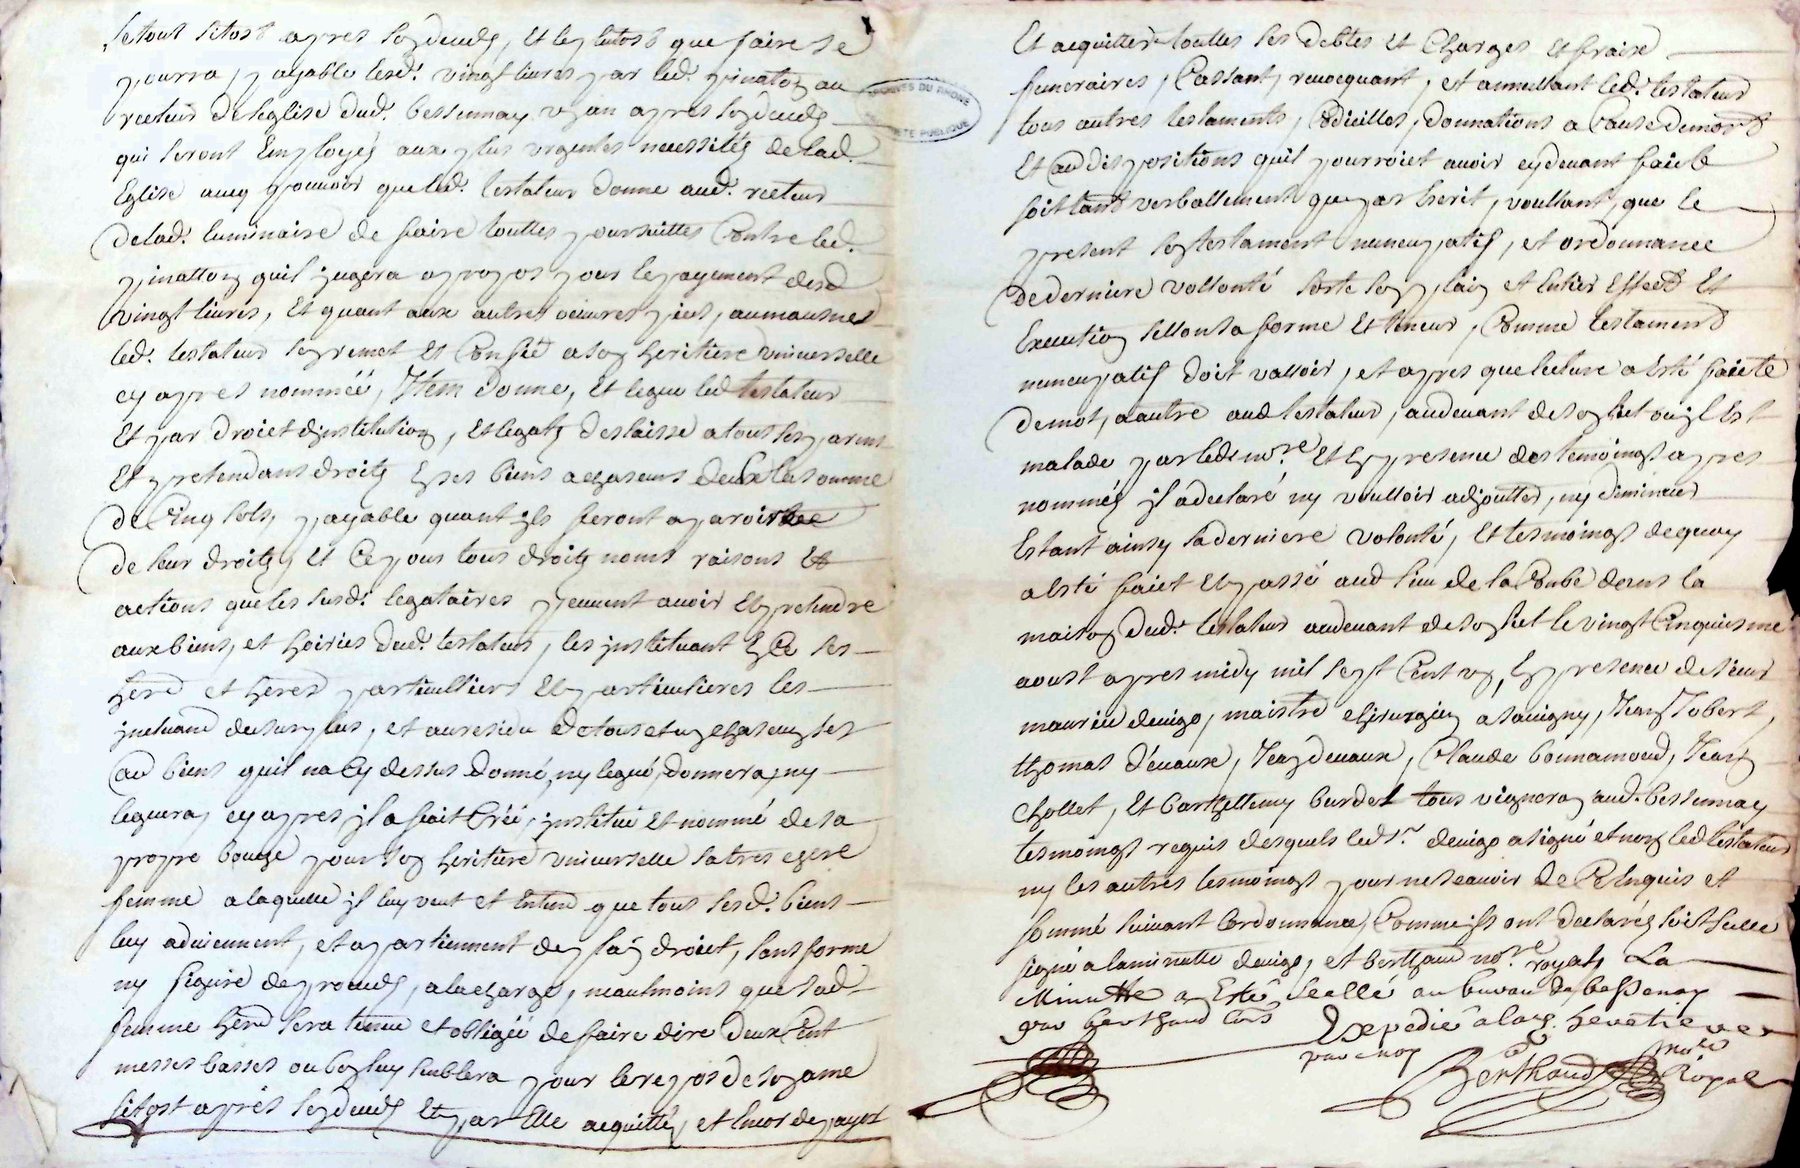 le tout sitost apres son deceds, et le plutost que faire se
pourra, payable lesd. vingt livres par led. pinaton au
recteur de leglise dud. bessennay un an apres son deceds
qui seront employés aux plus urgentes necessités de lad.
Eglise avec pouvoir que led. testateur donne aud. recteur
de lad. luminaire de faire touttes poursuittes contre led.
pinatton quil jugera apropos pour le payement desd
vingt livres, Et quant aux autres oeuvres pies, aumausnes
led. testateur sen remet et confie a son heritiere universelle
cy apres nommée, Item donne, et legue led testateur
Et par droict dinstitution, et legatz deslaisse a tous ses parens
Et pretendans droitz en ses biens a chascuns deux la somme
de Cinq sols, payable quant ils feront aparoistre
de leur droitz, et ce pour tous droitz noms raisons et
actions que les susd. legataires peuvent avoir et pretendre
aux biens, et hoiries dud. testateur, les instituant en ce ses
herd et heres particulliers et particulieres les
excluand du surplus, et au residu de tous et un chascun ses
au biens quil na cy dessus donné, ny legué, donnera, ny
leguera, cy apres il a fait créé, institué et nommé de sa
propre bouche pour son heritiere universelle sa tres chere
femme a laquelle il luy veut et entend que tous sesd. biens
luy adviennent, et apartiennent de plain droict, sans forme
ny figure de proceds, a la charge, neaulmoins que sad
femme herd sera tenue et obligée de faire dire deux cent
messes basses ou bon luy semblera pour le repos de son ame
sitost aprés son deceds et par elle acquittés, et encor de payer
Et acquitter touttes ses debtes et charges et fraix
funeraires, Cassant, revocquant, et annullant led. testateur
tous autres testaments, Codicilles, donnations a cause de mort
Et au dispositions quil pourroiet avoir cy devant faicte
soit tant verballement que par escrit, voullant, que le
present son testament nuncupatif, et ordonnance
de derniere vollonté sorte son plain et entier effect Et
Execution sellon sa forme et teneur, Comme testament
nuncupatif doit valloir, et apres que lecture a esté faicte
de mot, a autre aud testateur, audevant de son lict ou il est
malade par led. nore. Et en presence des temoings apres
nommés il a declaré ny voulloir adjoutter, ny diminuer
Estant ainsy sa derniere volonté, Et tesmoings de quoy
a esté faict et passé aud lieu de la Combe dans la
maison dud. testateur audevant de son lict le vingt cinquiesme
aoust apres midy mil sept cent un, En presence de sieur
maurice denigo, maistre chirurgien a savigny, Jean Jobert,
thomas devaux, Jean devaux, Claude bonnamoud, Jean
chollet, Et barthellemy burdel tous vigneron aud. bessennay
tesmoings requis desquels led sr. denigo a signé et non led testateur
ny les autres tesmoings pour ne scavoir de ce Enquis et
sommé suivant l'ordonnance, Comme ils ont declarés soit scellé
signé a la minutte denigo, et berthaud nore. royal. La
Minutte a Esté scellé au bureau de bessenay
par berthaud
Expedié a lad. heretiere
par moy
Berthaud nore
Royal
ARCHIVES DU RHONE
PUBLIQUE